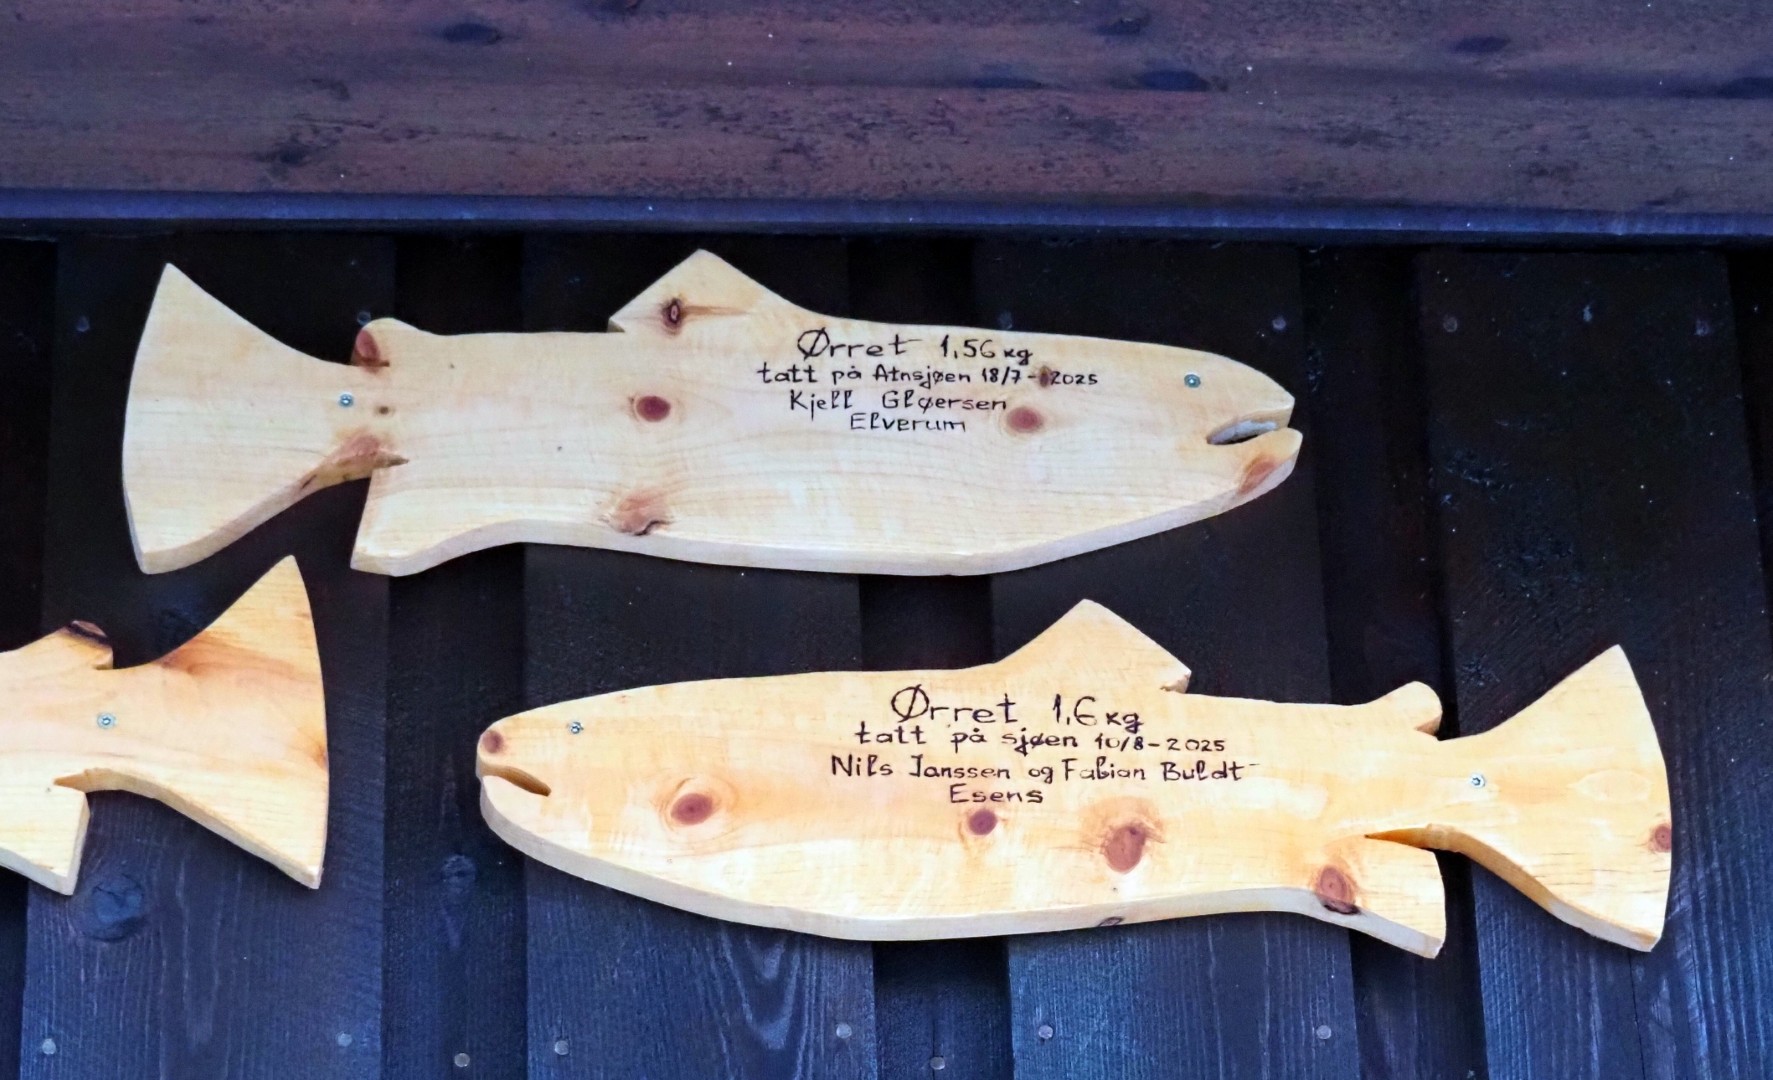 Ørret 1,56 kg
tatt på Atnsjøen 18/7-2025
Kjell Gløersen
Elverum
Ørret 1,6 kg
tatt på sjøen 10/8-2025
Nils Janssen og Fabian Buldt
Esens